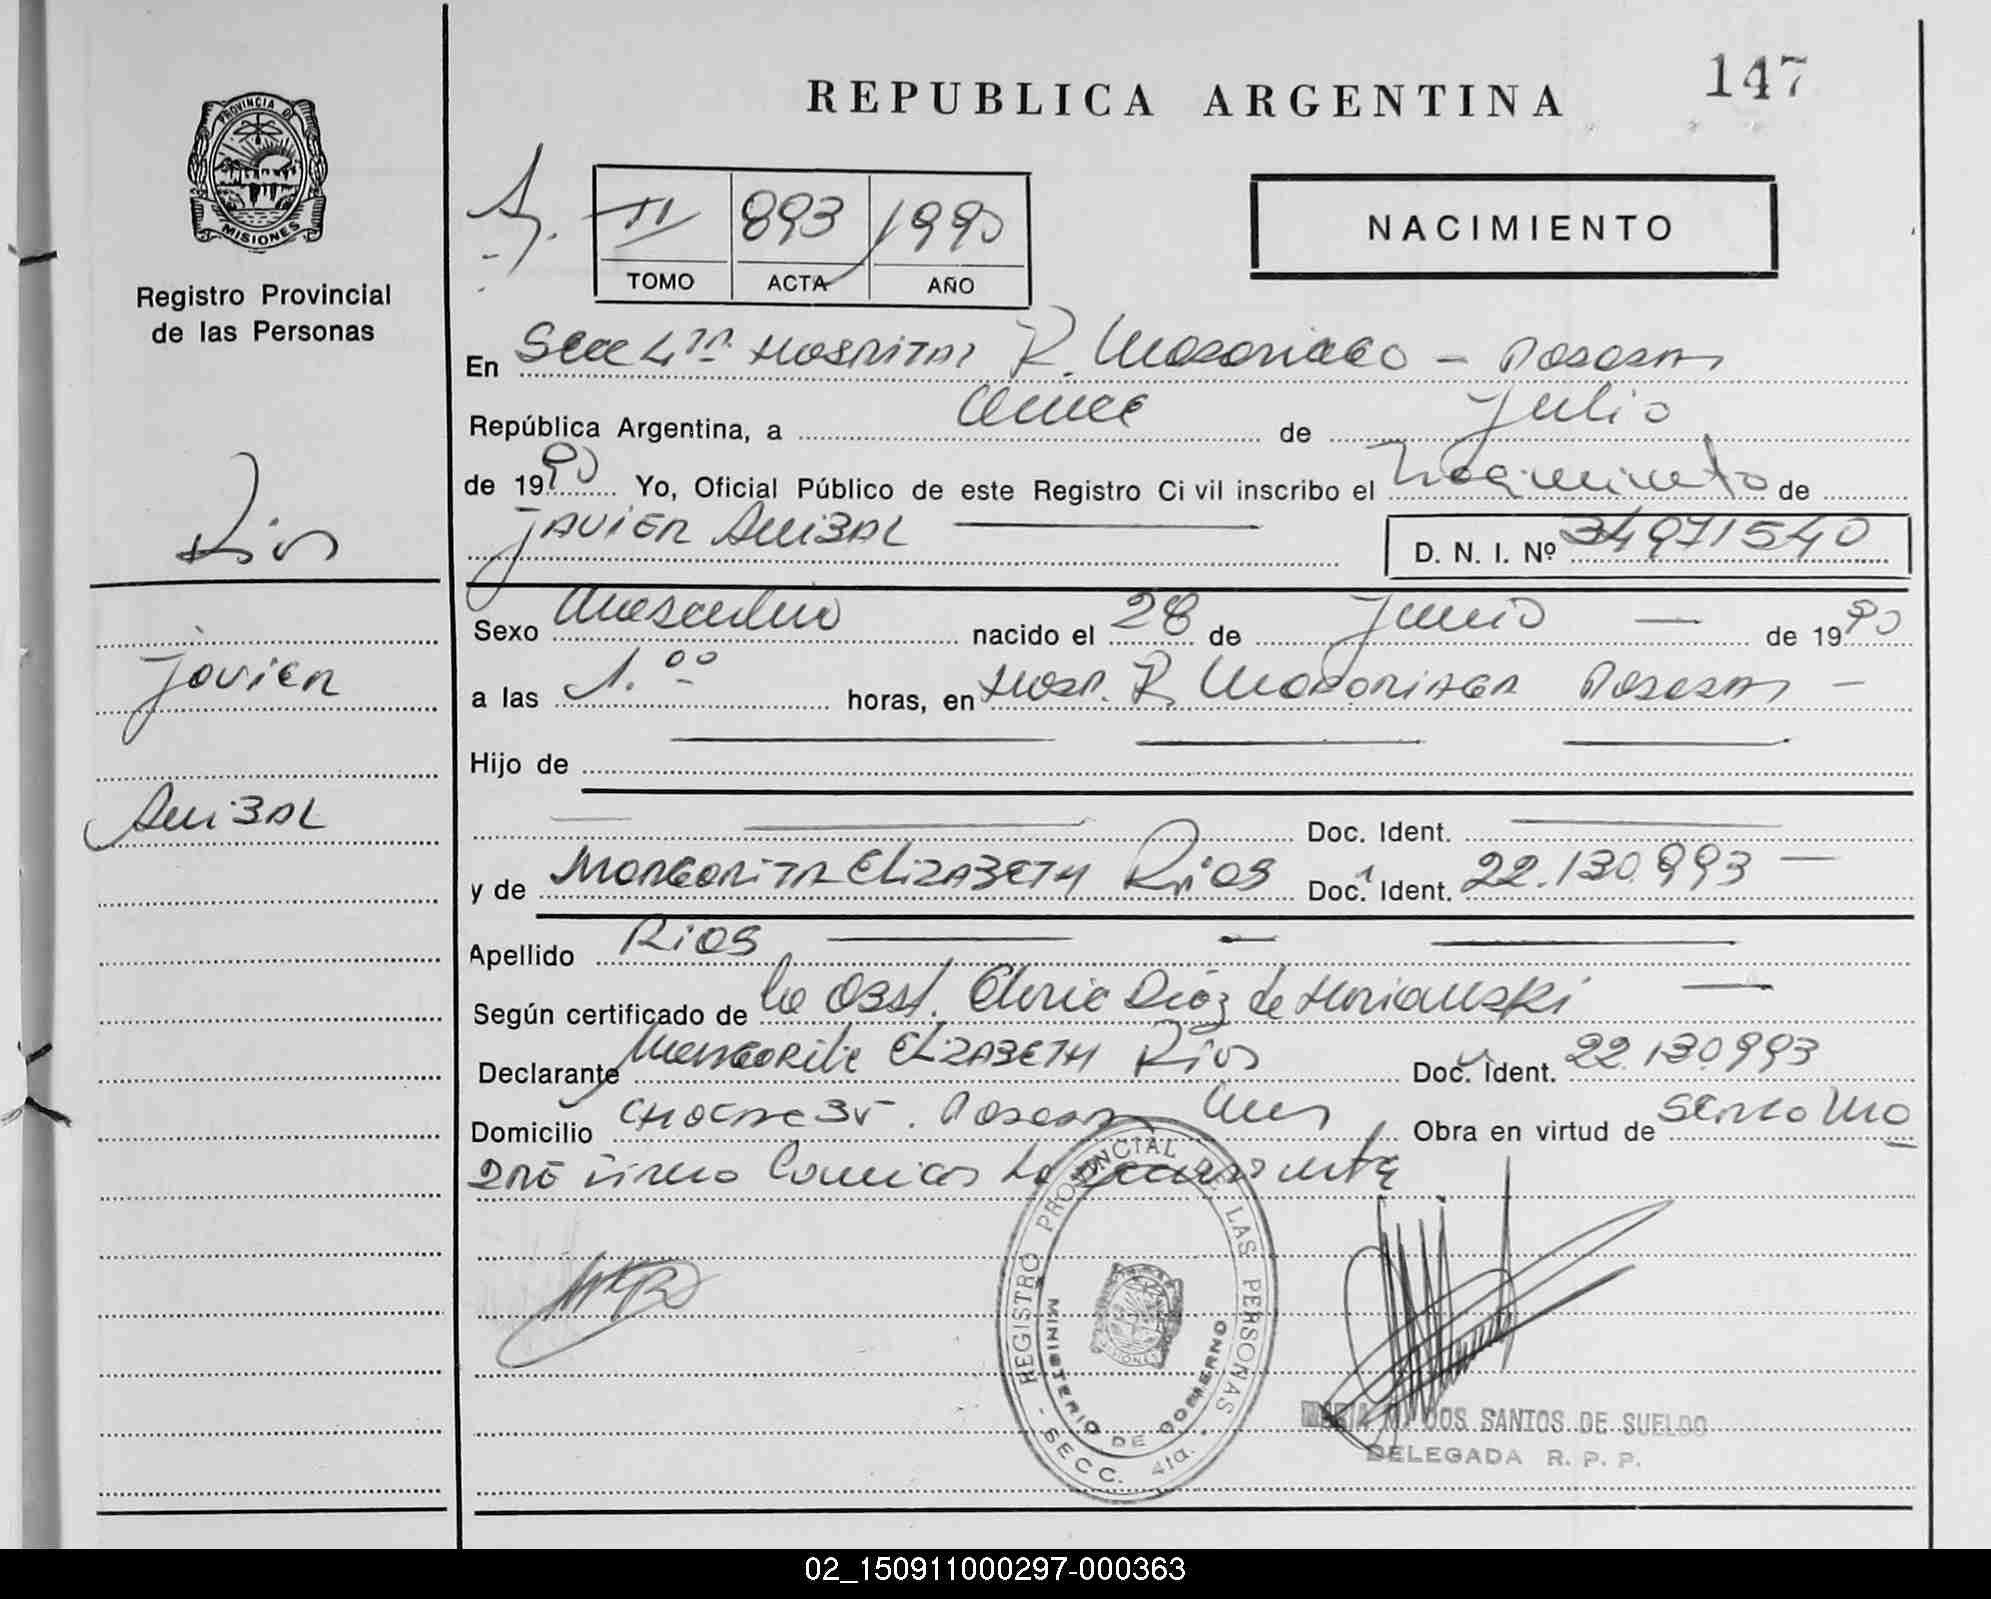 REPUBLICA ARGENTINA
147
PROVINCIA DE
MISIONES
Registro Provincial
de las Personas
II 893 1990
TOMO ACTA AÑO
NACIMIENTO
En Secc 4ta Hospital R. Madariaga - Posadas
República Argentina, a once de Julio
de 1990 Yo, Oficial Público de este Registro Civil inscribo el Nacimiento de
JAVIER ANIBAL
D. N. I. Nº 34971540
Rios
Javier
ANIBAL
Sexo Masculino nacido el 28 de Junio de 1990
a las 1.00 horas, en Hosp. R. Madariaga Posadas
Hijo de
Doc. Ident.
y de MARGARITA ELIZABETH Rios Doc. Ident. 22.130.993
Apellido RIOS
Según certificado de la Obst. Díaz de
Declarante Margarita ELIZABETH Rios Doc. Ident. 22.130.993
Domicilio Posadas Mnes Obra en virtud de
la
REGISTRO PROVINCIAL DE LAS PERSONAS
MINISTERIO DE GOBIERNO
- SECC. 4ta. -
MARIA DOS SANTOS DE SUELDO
DELEGADA R. P. P.
02_150911000297-000363